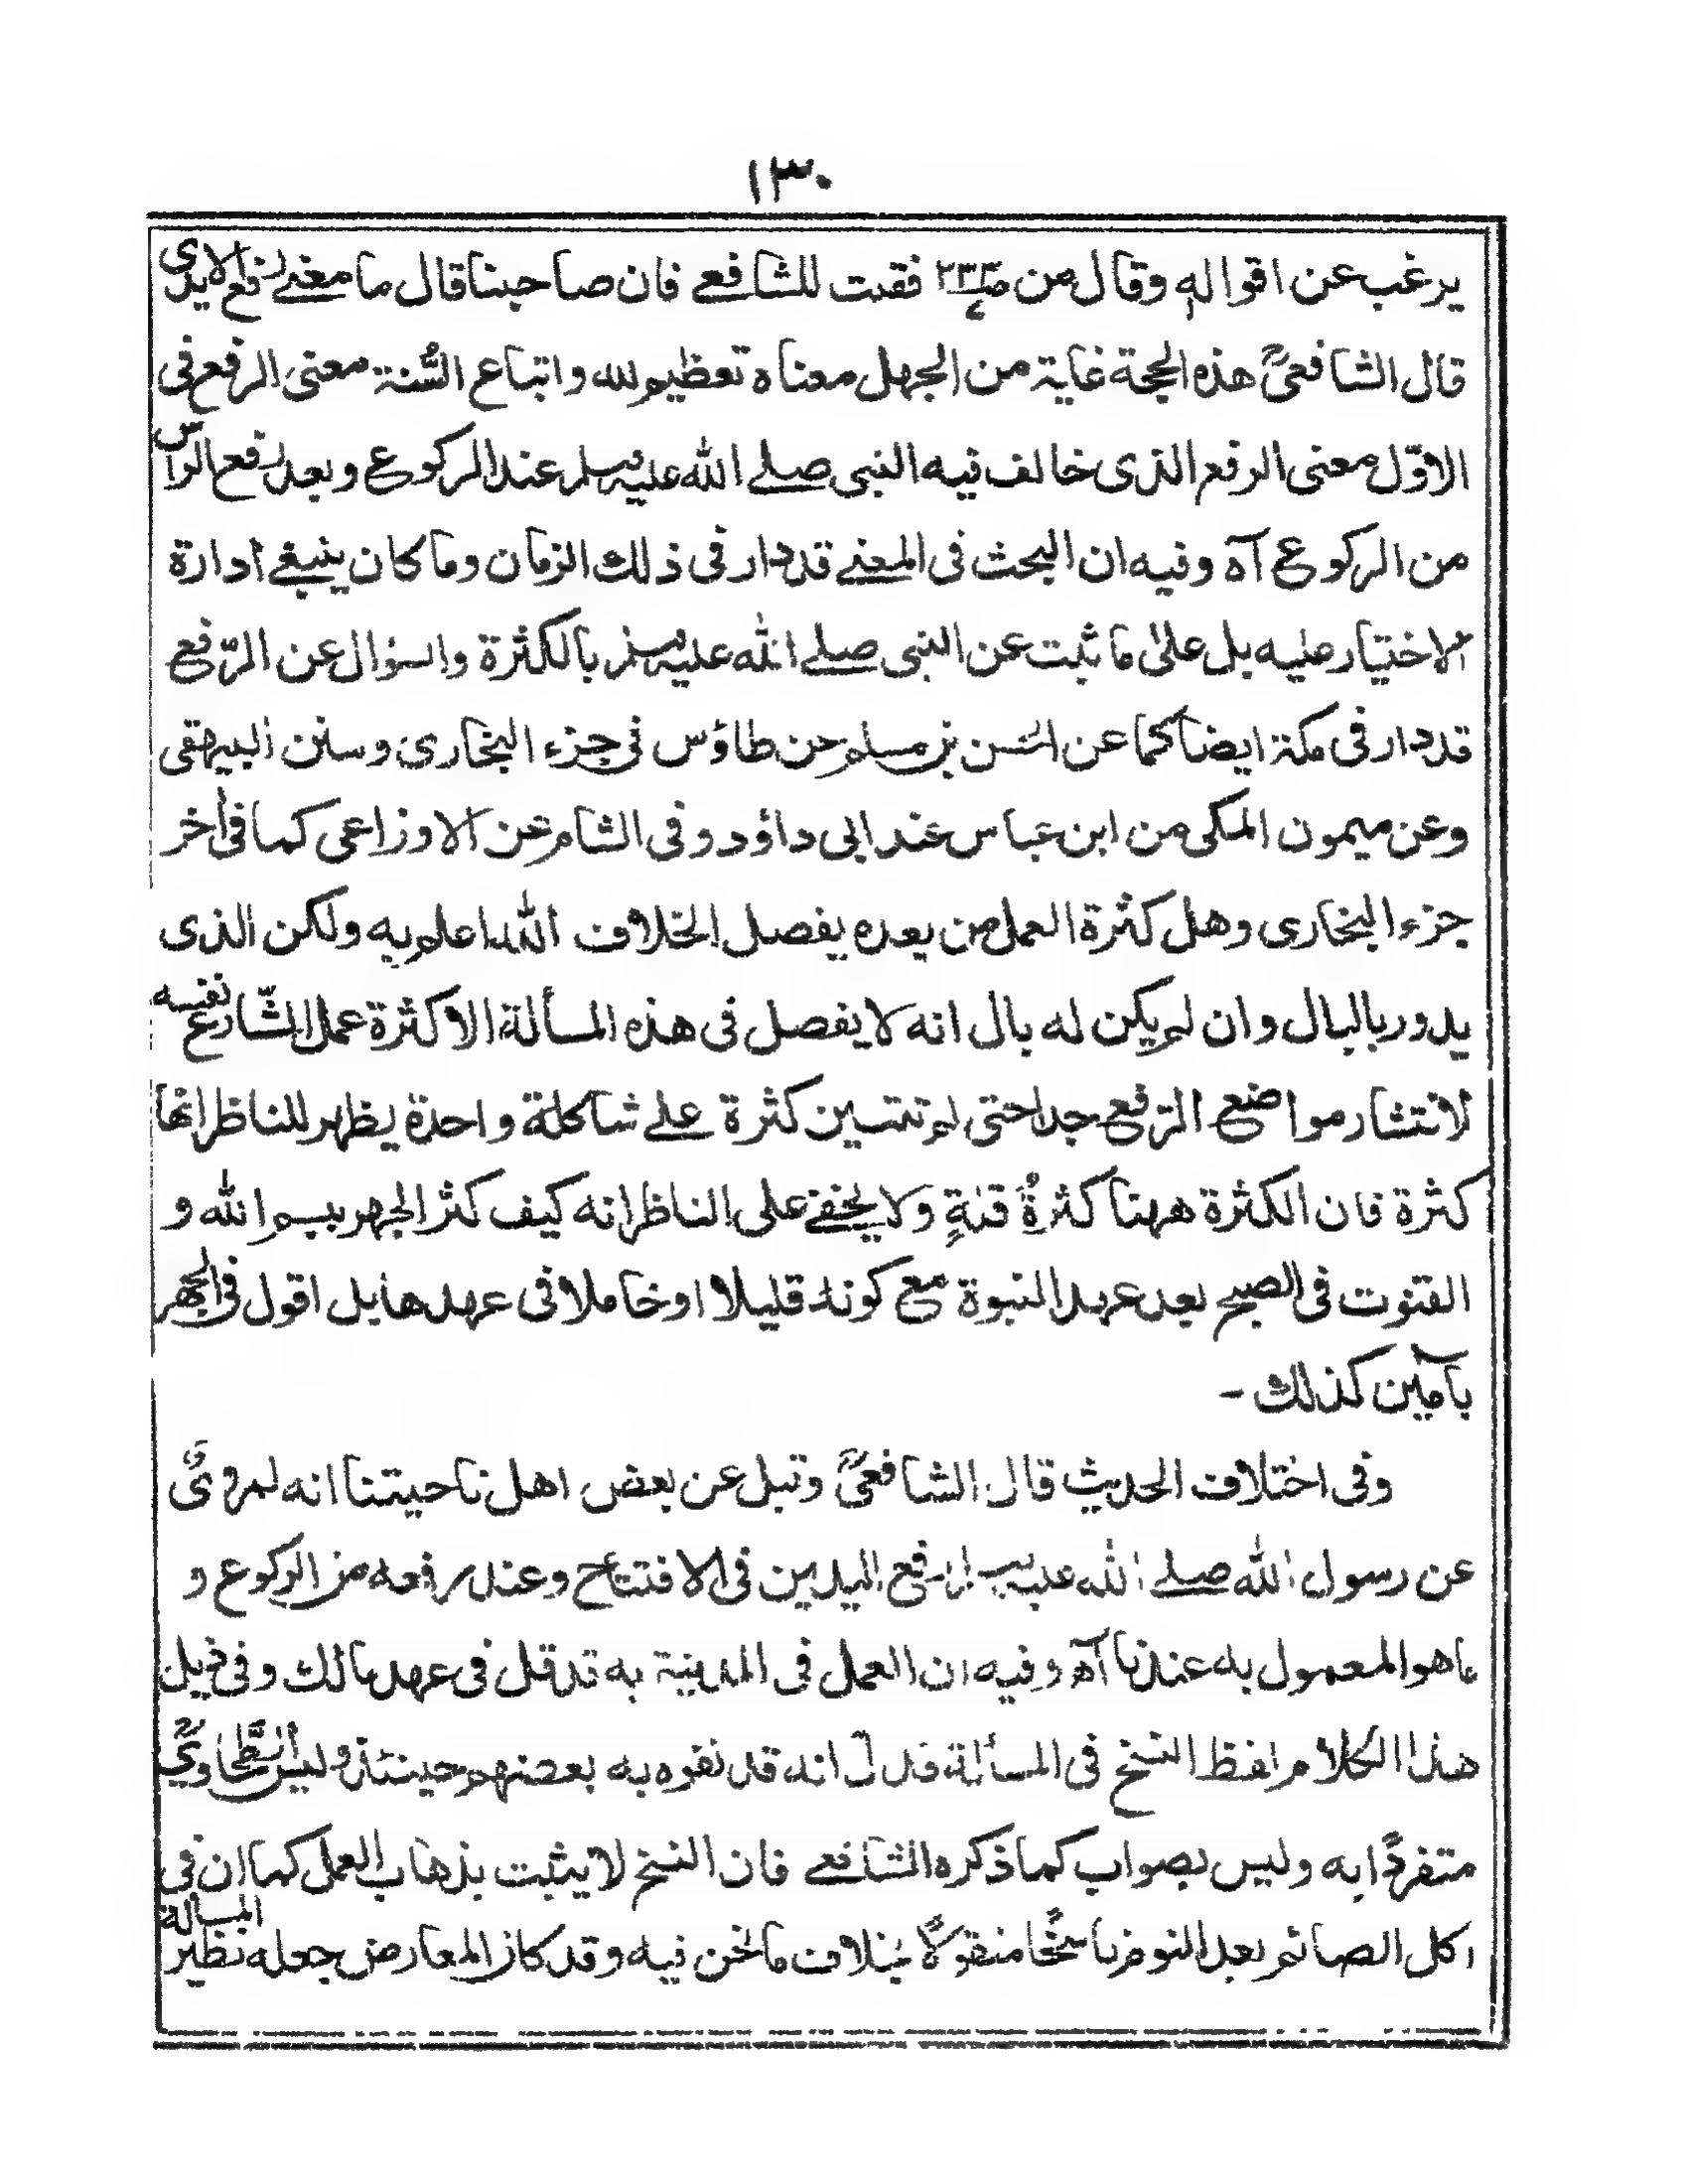 ١٣٠
يرغب عن اقواله وقال من ص٢٣٣ فقلت للشافعي فان صاحبنا قال ما معنى رفع الايدى
قال الشافعيؒ هذه الحجة غاية من الجهل معناه تعظيم لله واتباع السُّنة معنى الرفع فى
الاوّل معنى الرفع الذى خالف فيه النبى صلى الله عليه وسلم عند الركوع وبعد رفع الراس
من الركوع آه وفيه ان البحث فى المعنى قد دار فى ذلك الزمان وما كان ينبغى ادارة
الاختيار عليه بل على ما ثبت عن النبى صلى الله عليه وسلم بالكثرة والسؤال عن الرّفع
قد دار فى مكة ايضا كما عن الحسن بن مسلم عن طاؤس فى جزء البخارى وسنن البيهقى
وعن ميمون المكى من ابن عباس عند ابى داؤد وفى الشام عن الاوزاعى كما فى أخر
جزء البخارى وهل كثرة العمل من بعده يفصل الخلاف الله اعلم به ولكن الذى
يدور بالبال وان لم يكن له بال انه لا يفصل فى هذه المسألة الا كثرة عمل الشّارع نفسه
لانتشار مواضع الرّفع جدا حتى لم تتبين كثرة على شاكلة واحدة يظهر للناظر انها
كثرة فان الكثرة ههنا كثرةُ قلةٍ ولا يخفى على الناظر انه كيف كثر الجهر ببسم الله و
القنوت فى الصبح بعد عهد النبوة مع كونه قليلا او خاملا فى عهدها بل اقول فى الجهر
بآمين كذلك -
وفى اختلاف الحديث قال الشافعيؒ وقيل عن بعض اهل ناحيتنا انه لمروىٌّ
عن رسول الله صلى الله عليه وسلم رفع اليدين فى الافتتاح وعند رفعه من الركوع و
ما هو المعمول به عندنا آه وفيه ان العمل فى المدينة به قد قل فى عهد مالك وفى ذيل
هذا الكلام لفظ النسخ فى المسألة فدل انه قد تفوه به بعضهم حينئذ وليس الطَّحاويؒ
متفردًا به وليس بصواب كما ذكره الشافعى فان النسخ لا يثبت بذهاب العمل كما ان فى
اكل الصائم بعد النوم ناسخًا منقولًا بخلاف ما نحن فيه وقد كان المعارض جعله نظير المسألة